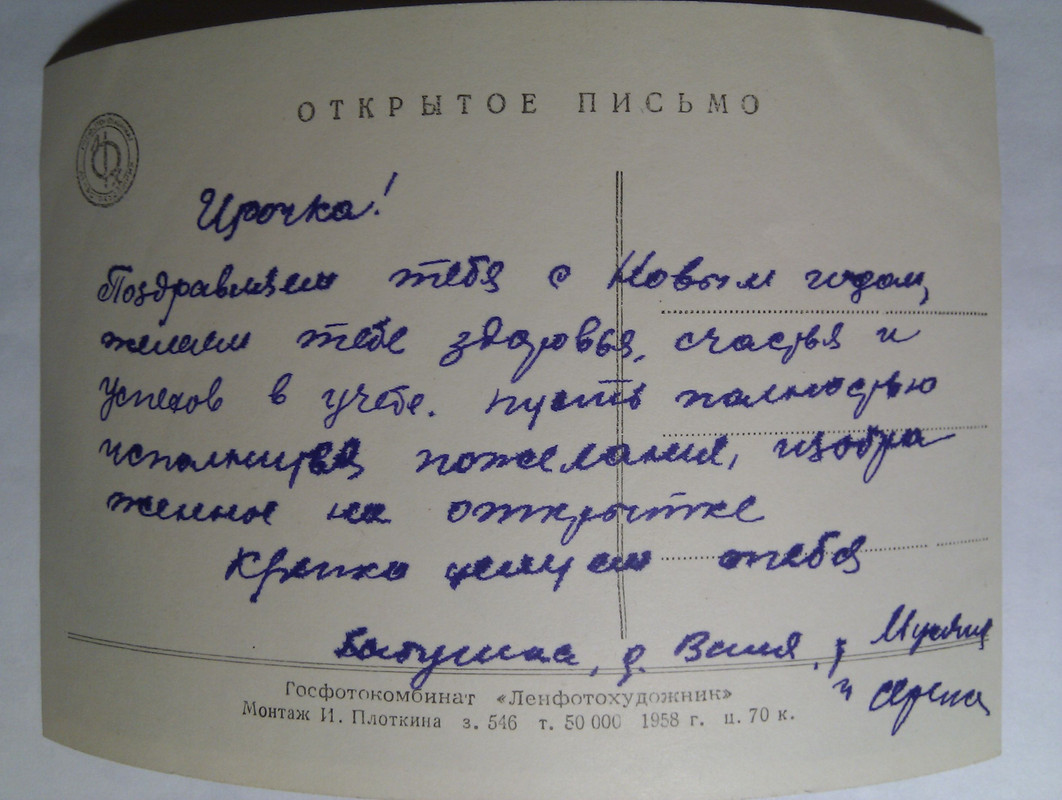 ОТКРЫТОЕ ПИСЬМО
Ирочка!
Поздравляем тебя с Новым годом,
желаем тебе здоровья, счастья и
успехов в учебе. Пусть полностью
исполнится пожелания, изобра
женное на открытке
Крепко целуем тебя
Бабушка, д. Ваня,
и
Госфотокомбинат «Ленфотохудожник»
Монтаж И. Плоткина з. 546 т. 50 000 1958 г. ц. 70 к.